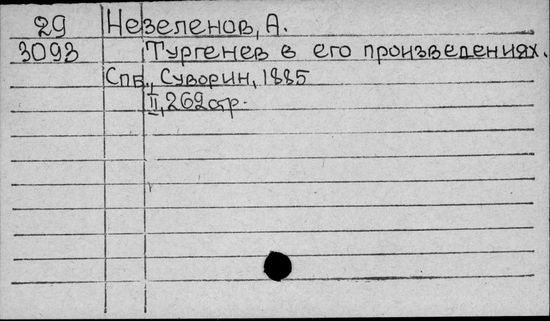 29 Незеленов, А.
3093 Тургенев в его произведениях.
Спб., Суворин, 1885
II, 262 стр.